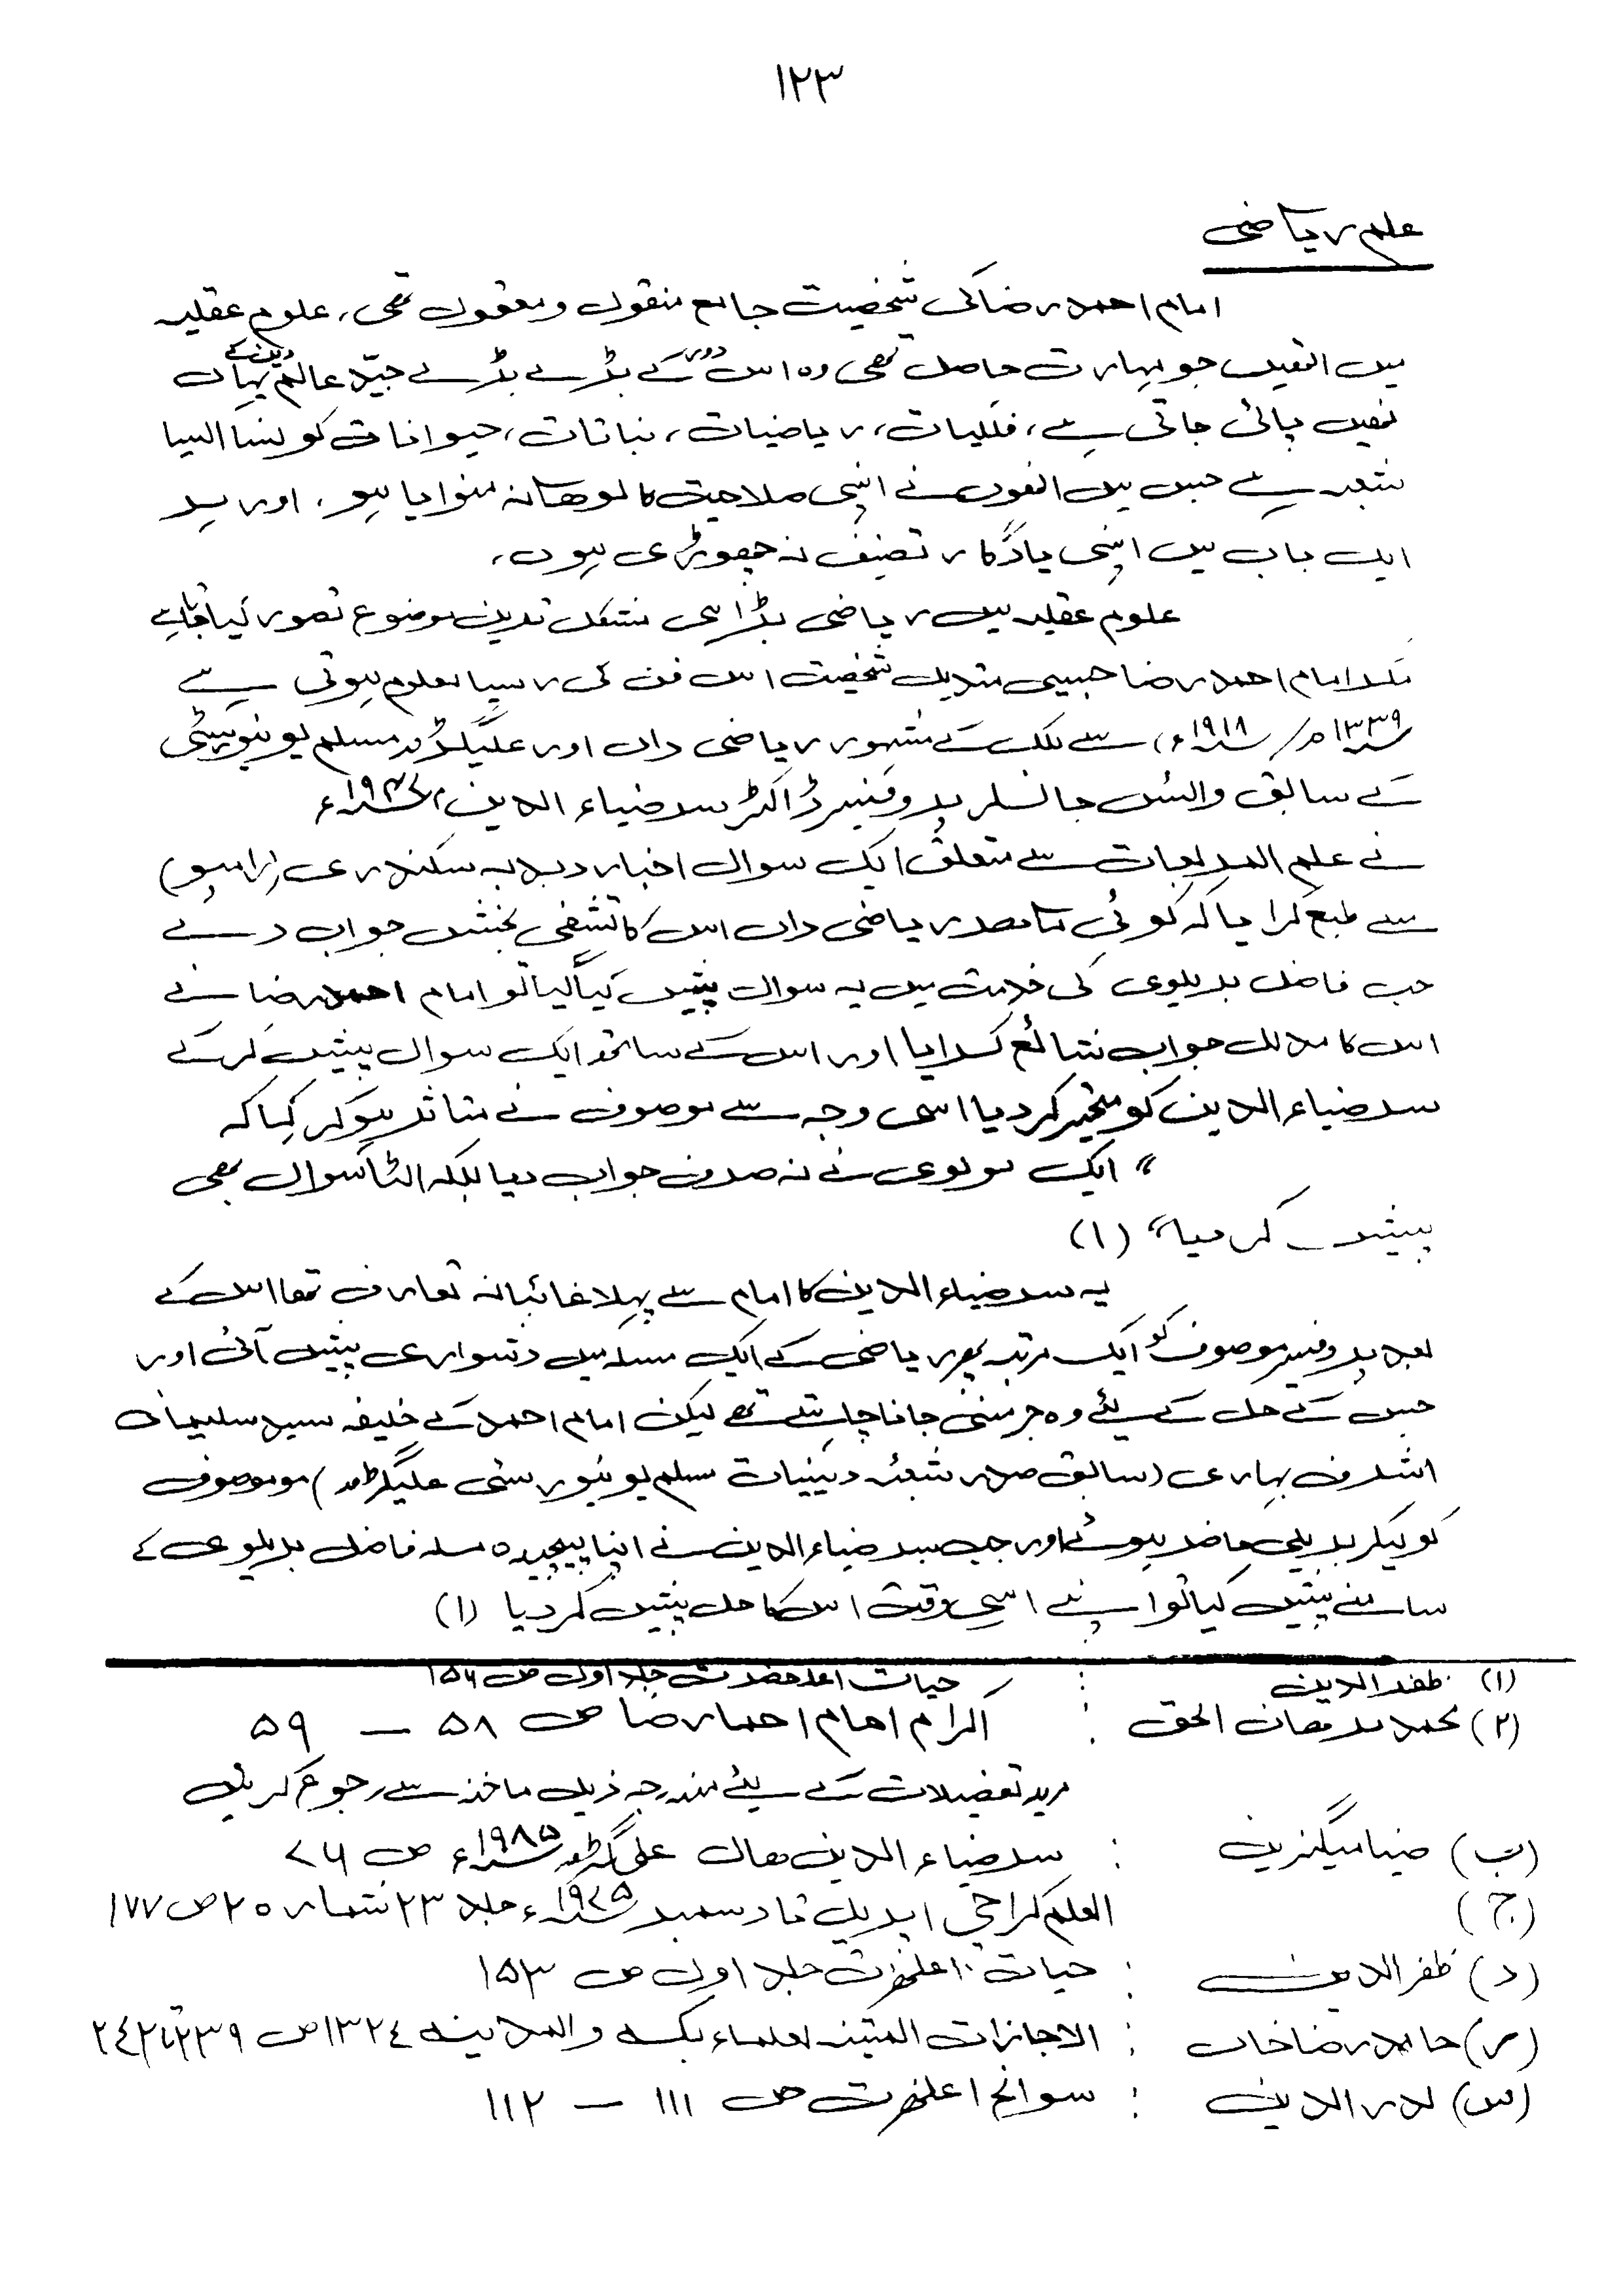 ۱۲۳
علم ریاضی
امام احمد رضا کی شخصیت جامع منقول و معقول تھی، علوم عقلیہ
میں انھیں جو مہارت حاصل تھی وہ اس دور کے بڑے بڑے جیّد عالم دین کے یہاں
نہیں پائی جاتی ہے، فلکیات، ریاضیات، نباتات، حیوانات کونسا ایسا
شعبہ ہے جس میں انھوں نے اپنی صلاحیت کا لوھا نہ منوایا ہو، اور ہر
ایک باب میں اپنی یادگار تصنیف نہ چھوڑی ہوں،
علوم عقلیہ میں ریاضی بڑا ہی مشکل ترین موضوع تصور کیا جاتا ہے
مگر امام احمد رضا جیسی متدین شخصیت اس فن کی رسیا معلوم ہوتی ہے
۱۳۳۹ھ/ ۱۹۱۸ء) سے ملک کے مشہور ریاضی داں اور علیگڑھ مسلم یونیورسٹی
کے سابق وائس چانسلر پروفیسر ڈاکٹر سر ضیاء الدین م ۱۹۴۷ء
نے علم المربعات سے متعلق ایک سوال اخبار دبدبہ سکندری (رامپور)
سے طبع کرایا کہ کوئی ریاضی داں اس کا تشفی بخش جواب دے
جب فاضل بریلوی کی خدمت میں یہ سوال پیش کیا گیا تو امام احمد رضا نے
اس کا مدلل جواب شائع کرایا اور اس کے ساتھ ایک سوال پیش کر کے
سر ضیاء الدین کو متحیر کر دیا اسی وجہ سے موصوف نے متاثر ہو کر کہا کہ
“ ایک مولوی نے نہ صرف جواب دیا بلکہ الٹا سوال بھی
پیش کر دیا“ (۱)
یہ سر ضیاء الدین کا امام سے پہلا غائبانہ تعارف تھا اس کے
بعد پروفیسر موصوف کو ایک مرتبہ پھر ریاضی کے ایک مسئلہ میں دشواری پیش آئی اور
جس کے حل کے لئے وہ جرمنی جانا چاہتے تھے لیکن امام احمد کے خلیفہ سید سلیمان
اشرف بہاری (سابق صدر شعبہ دینیات مسلم یونیورسٹی علیگڑھ) موصوف
کو لیکر بریلی حاضر ہوئے اور جب سر ضیاء الدین نے اپنا پیچیدہ مسئلہ فاضل بریلوی کے
سامنے پیش کیا تو اپنے اسی وقت اس کا حل پیش کر دیا (۱)
(۱) ظفر الدین : حیات اعلحضرت جلد اول ص ۱۵۶
(۲) محمد برھان الحق : اکرام امام احمد رضا ص ۵۸ — ۵۹
مزید تفصیلات کے لئے مندرجہ ذیل ماخذ سے رجوع کریں
(ب) ضیا میگزین : سر ضیاء الدین ھال علی گڑھ ۱۹۸۵ء ص ۷۶
(ج) العلم کراچی اپریل تا دسمبر ۱۹۷۵ء جلد ۲۳ شمارہ ۲۰ ص ۱۷۷
(د) ظفر الدین : حیات اعلحضرت جلد اول ص ۱۵۳
(ر) حامد رضا خاں : الاجازات المتینہ لعلماء بکۃ والمدینہ ۱۳۲٤ ص ۲۳۹ تا ۲٤۲
(س) بدر الدین : سوانح اعلحضرت ص ۱۱۱ — ۱۱۲